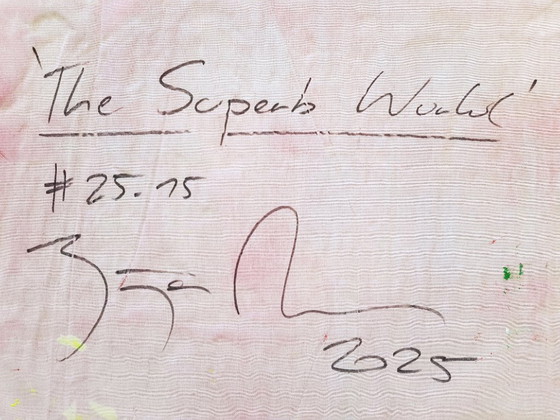 'The Superb World'
#25.15
2025